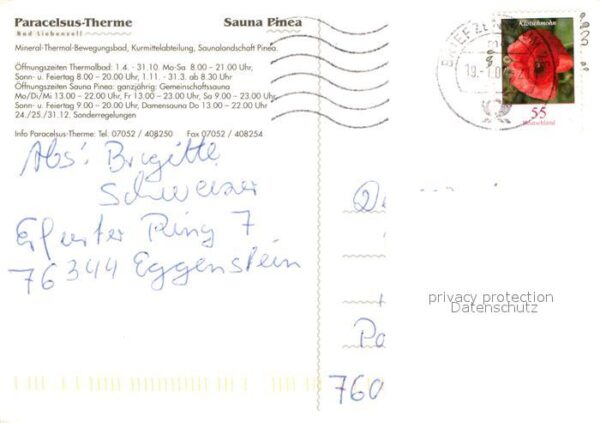 Paracelsus-Therme Sauna Pinea
Bad Liebenzell
Mineral-Thermal-Bewegungsbad, Kurmittelabteilung, Saunalandschaft Pinea.
Öffnungszeiten Thermalbad: 1.4. - 31.10. Mo-Sa. 8.00 - 21.00 Uhr,
Sonn- u. Feiertag 8.00 - 20.00 Uhr, 1.11. - 31.3. ab 8.30 Uhr
Öffnungszeiten Sauna Pinea: ganzjährig: Gemeinschaftssauna
Mo/Di/Mi 13.00 – 22.00 Uhr, Fr 13.00 – 23.00 Uhr, Sa 9.00 – 23.00 Uhr
Sonn- u. Feiertag 9.00 – 20.00 Uhr, Damensauna Do 13.00 – 22.00 Uhr
24./25./31.12. Sonderregelungen
Info Paracelsus-Therme: Tel. 07052 / 408250 Fax 07052 / 408254
Abs: Brigitte
Schweizer
Erfurter Ring 7
76344 Eggenstein
Klatschmohn
55
Deutschland
BRIEFZENTRUM
760
privacy protection
Datenschutz